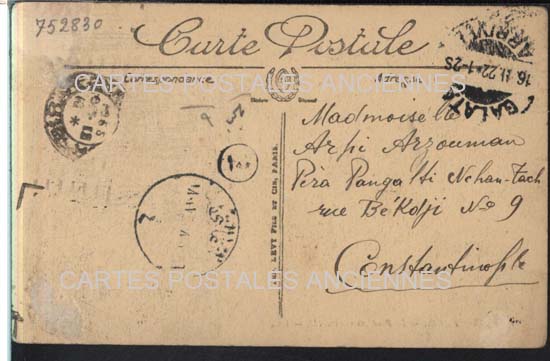 752830
Carte Postale
Correspondance
Adresse
CARTES POSTALES ANCIENNES
ARRIVEE
16.11.22.1-2S
GALATA
Madmoiselle
Arpi Arzouman
Péra Pangalti Nchan-Tach
rue Békdji No 9
Constantinople
LEVY FILS ET CIE, PARIS.
CARTES POSTALES ANCIENNES